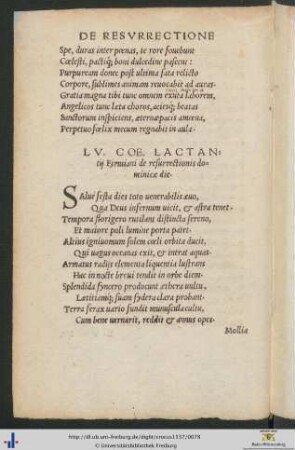 DE RESVRRECTIONE
Spe, duras inter pœnas, te rore fouebunt
Cœlesti, pactisq; boni dulcedine pascent:
Purpuream donec post ultima fata relicto
Corpore, sublimes animam reuocabit ad auras.
Gratia magna tibi tunc omnem exuta laborem,
Angelicos tunc læta choros, aciesq; beatas
Sanctorum inspiciens, æternæ pacis amœna,
Perpetuo fœlix mecum regnabit in aula.
LV. COE. LACTAN-
tij Firmiani de resurrectionis do-
minicæ die.
Salue festa dies toto uenerabilis æuo,
Qua Deus infernum uicit, & astra tenet.
Tempora florigero rutilant distincta sereno,
Et maiore poli lumine porta patet.
Altius igniuomum solem cœli orbita ducit,
Qui uagus oceanas exit, & intrat aquas.
Armatus radijs elementa liquentia lustrans
Hac in nocte breui tendit in orbe diem.
Splendida syncero producunt æthera uultu,
Lætitiamq; suam sydera clara probant.
Terra ferax uario fundit munuscula cultu,
Cum bene uernarit, reddit & annus opes.
Mollia
http://dl.ub.uni-freiburg.de/diglit/crocus1537/0078
© Universitätsbibliothek Freiburg
Baden-Württemberg